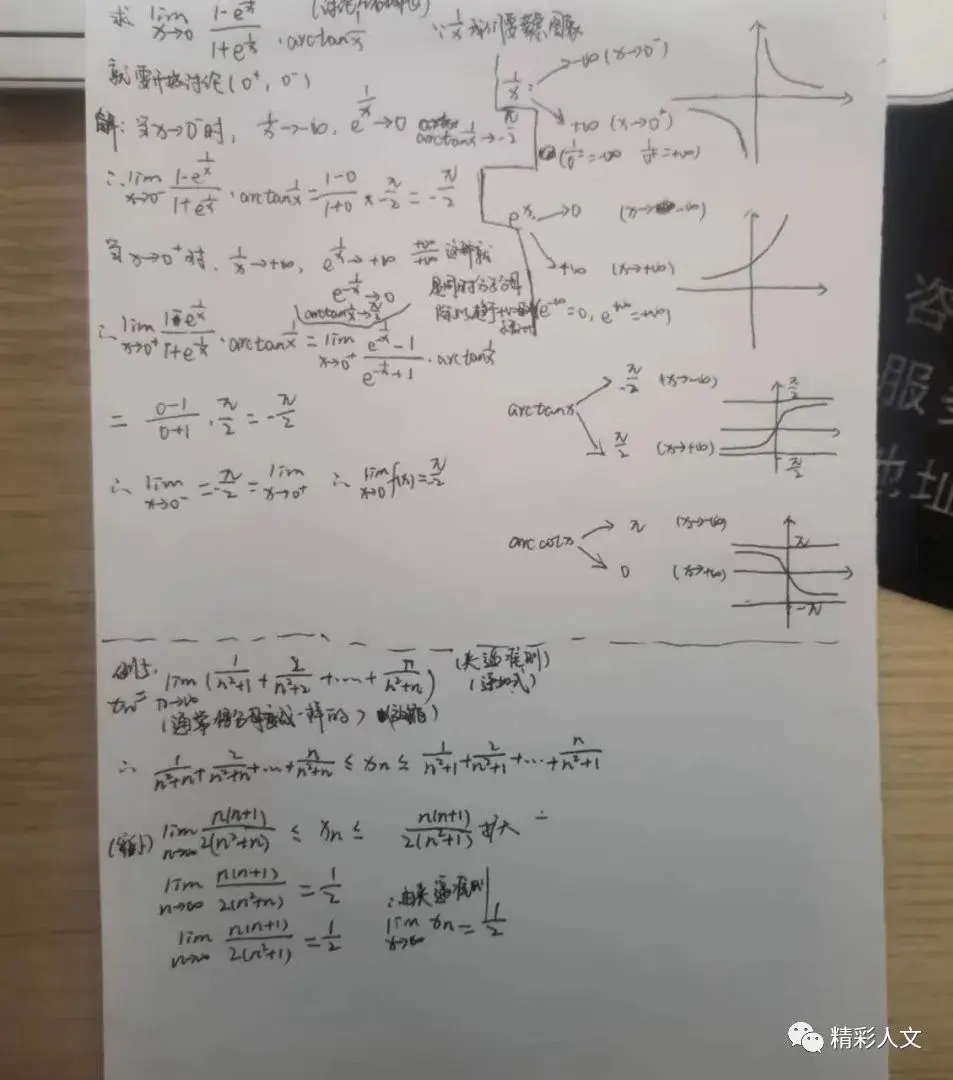 求 lim x→0 (1-e^(1/x))/(1+e^(1/x)) · arctan 1/x
∵ 1/x 我们要 图象
就要开始讨论(0⁺, 0⁻)
解: 当x→0⁻时, 1/x→-∞, e^(1/x)→0 arctan 1/x→-π/2
∴ lim x→0⁻ (1-e^(1/x))/(1+e^(1/x)) · arctan 1/x = (1-0)/(1+0) × -π/2 = -π/2
当x→0⁺时, 1/x→+∞, e^(1/x)→+∞ +∞/+∞ 这种就
e^(-1/x)→0 是同时分子分母
arctan 1/x→π/2 除以趋于+∞
∴ lim x→0⁺ (1-e^(1/x))/(1+e^(1/x)) · arctan 1/x = lim x→0⁺ (e^(-1/x)-1)/(e^(-1/x)+1) · arctan 1/x
= (0-1)/(0+1) · π/2 = -π/2
∴ lim x→0⁻ = -π/2 = lim x→0⁺ ∴ lim x→0 f(x) = -π/2
1/x: -∞ (x→0⁻)
+∞ (x→0⁺)
(1/0⁻=-∞ 1/0⁺=+∞)
e^x: →0 (x→-∞)
+∞ (x→+∞)
(e^(-∞)=0, e^(+∞)=+∞)
arctanx -π/2 (x→-∞)
π/2 (x→+∞)
π/2
-π/2
arccotx π (x→-∞)
0 (x→+∞)
π
-π
例5. xn= lim n→∞ (1/(n²+1) + 2/(n²+2) + ... + n/(n²+n)) (夹逼准则)
(通常把分母变成一样的)
∴ 1/(n²+n) + 2/(n²+n) + ... + n/(n²+n) ≤ xn ≤ 1/(n²+1) + 2/(n²+1) + ... + n/(n²+1)
lim n→∞ n(n+1)/(2(n²+n)) ≤ xn ≤ n(n+1)/(2(n²+1)) 扩大
lim n→∞ n(n+1)/(2(n²+n)) = 1/2 ∴由夹逼准则
lim n→∞ n(n+1)/(2(n²+1)) = 1/2 lim x→∞ xn = 1/2
咨
服
地址
精彩人文